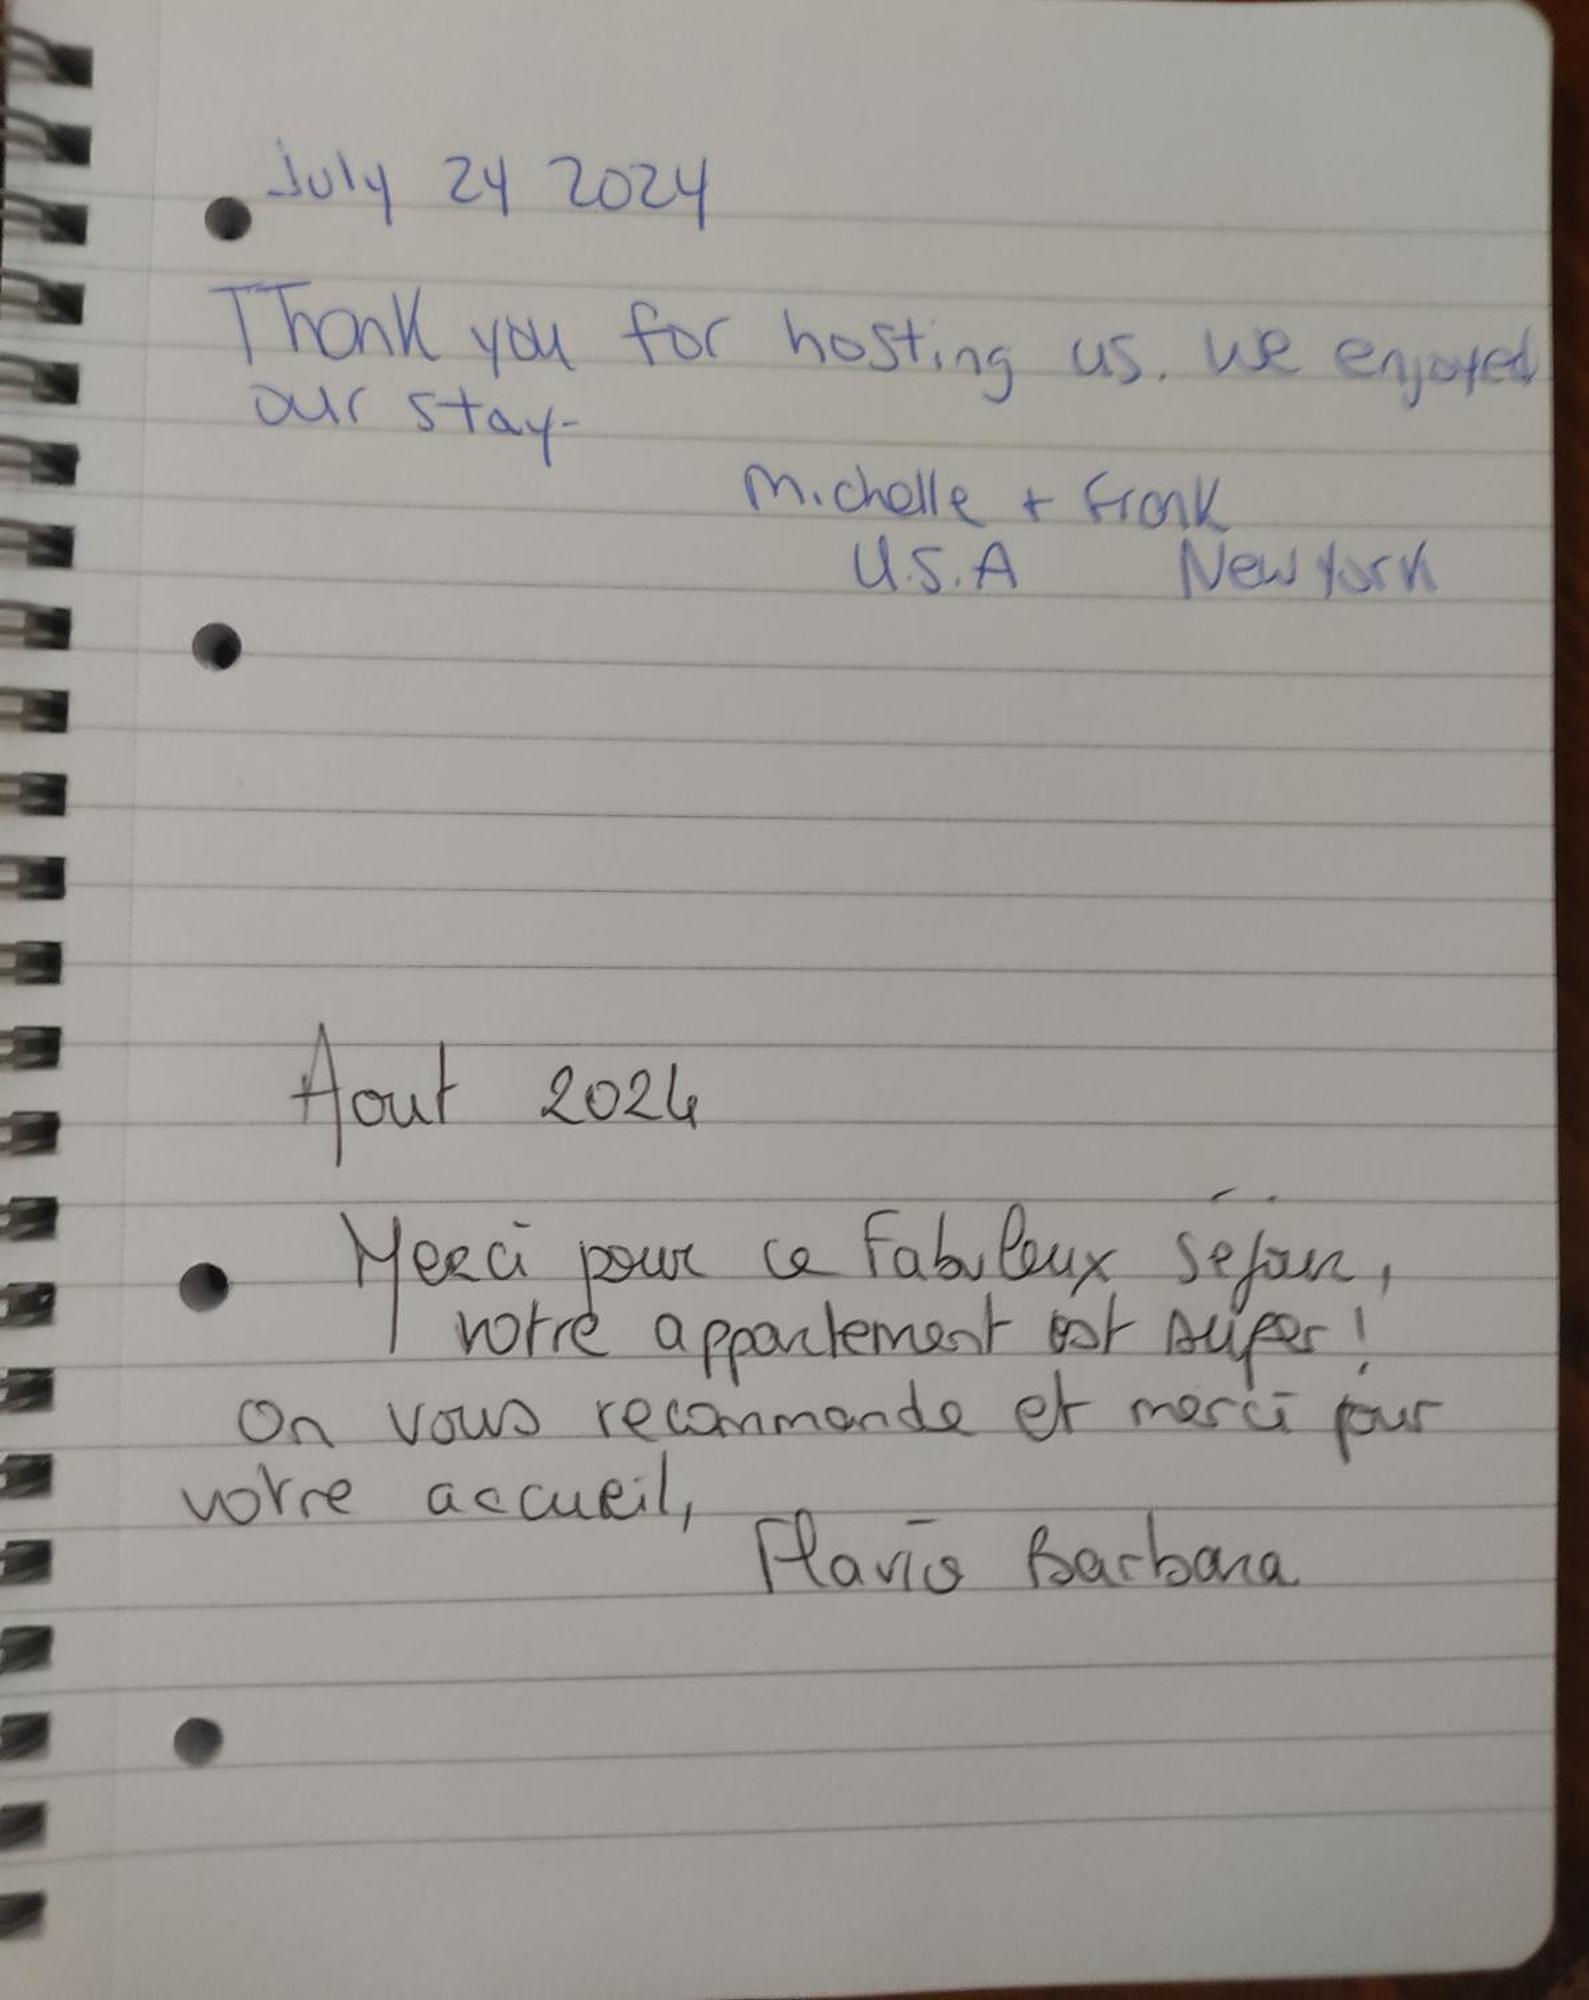 July 24 2024
Thank you for hosting us. we enjoyed
our stay-
Michelle + Frank
U.S.A New York
Aout 2024
Merci pour ce fabuleux séjour,
votre appartement est super!
On vous recommande et merci pour
votre accueil,
Flavio Barbara